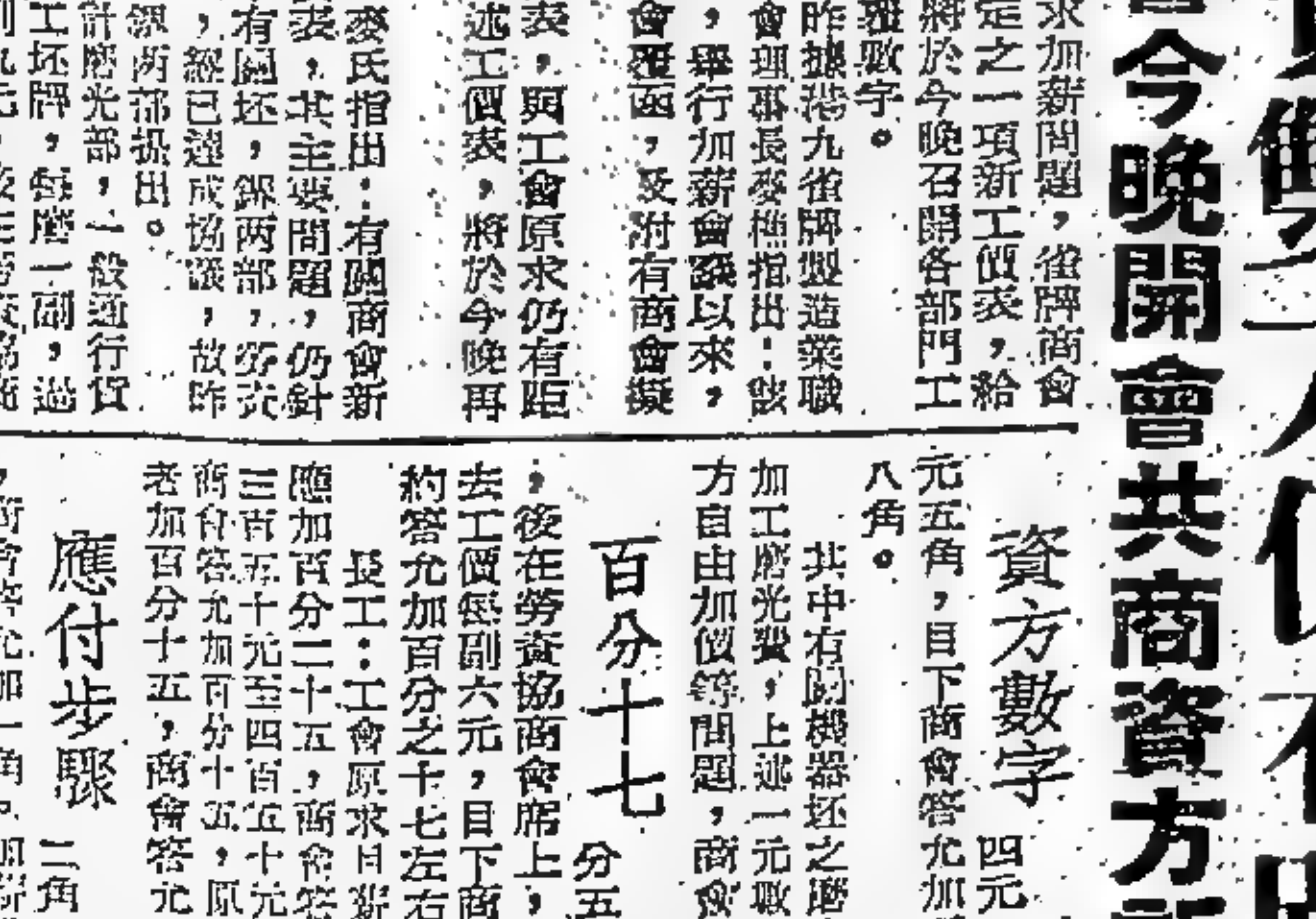 會今晚開會共商資方
求加薪問題，雀牌商會
定之一項新工價表，給
將於今晚召開各部門工
數字。
昨據港九雀牌製造業職
會理事長麥樵指出：該
，舉行加薪會議以來，
會覆函，及附有商會擬
表，與工會原求仍有距
述工價表，將於今晚再
麥氏指出：有關商會新
表，其主要問題，仍針
有關坯，鎅两部，勞資
，經已達成協議，故昨
鎅两部提出。
計磨光部，一般通行貨
工坯牌，每磨一副，過
資方數字
四元
元五角，目下商會答允加
八角。
其中有關機器坯之磨
加工磨光費，上述一元數
方自由加價等問題，商會
百分十七
分五
，後在勞資協商會席上，
去工價每副六元，目下商
約答允加百分之十七左右
長工：工會原求日薪
應加百分二十五，商會答
三百五十元至四百五十元
商會答允加百分十五，原
老加百分十五，商會答允
應付步驟
二角